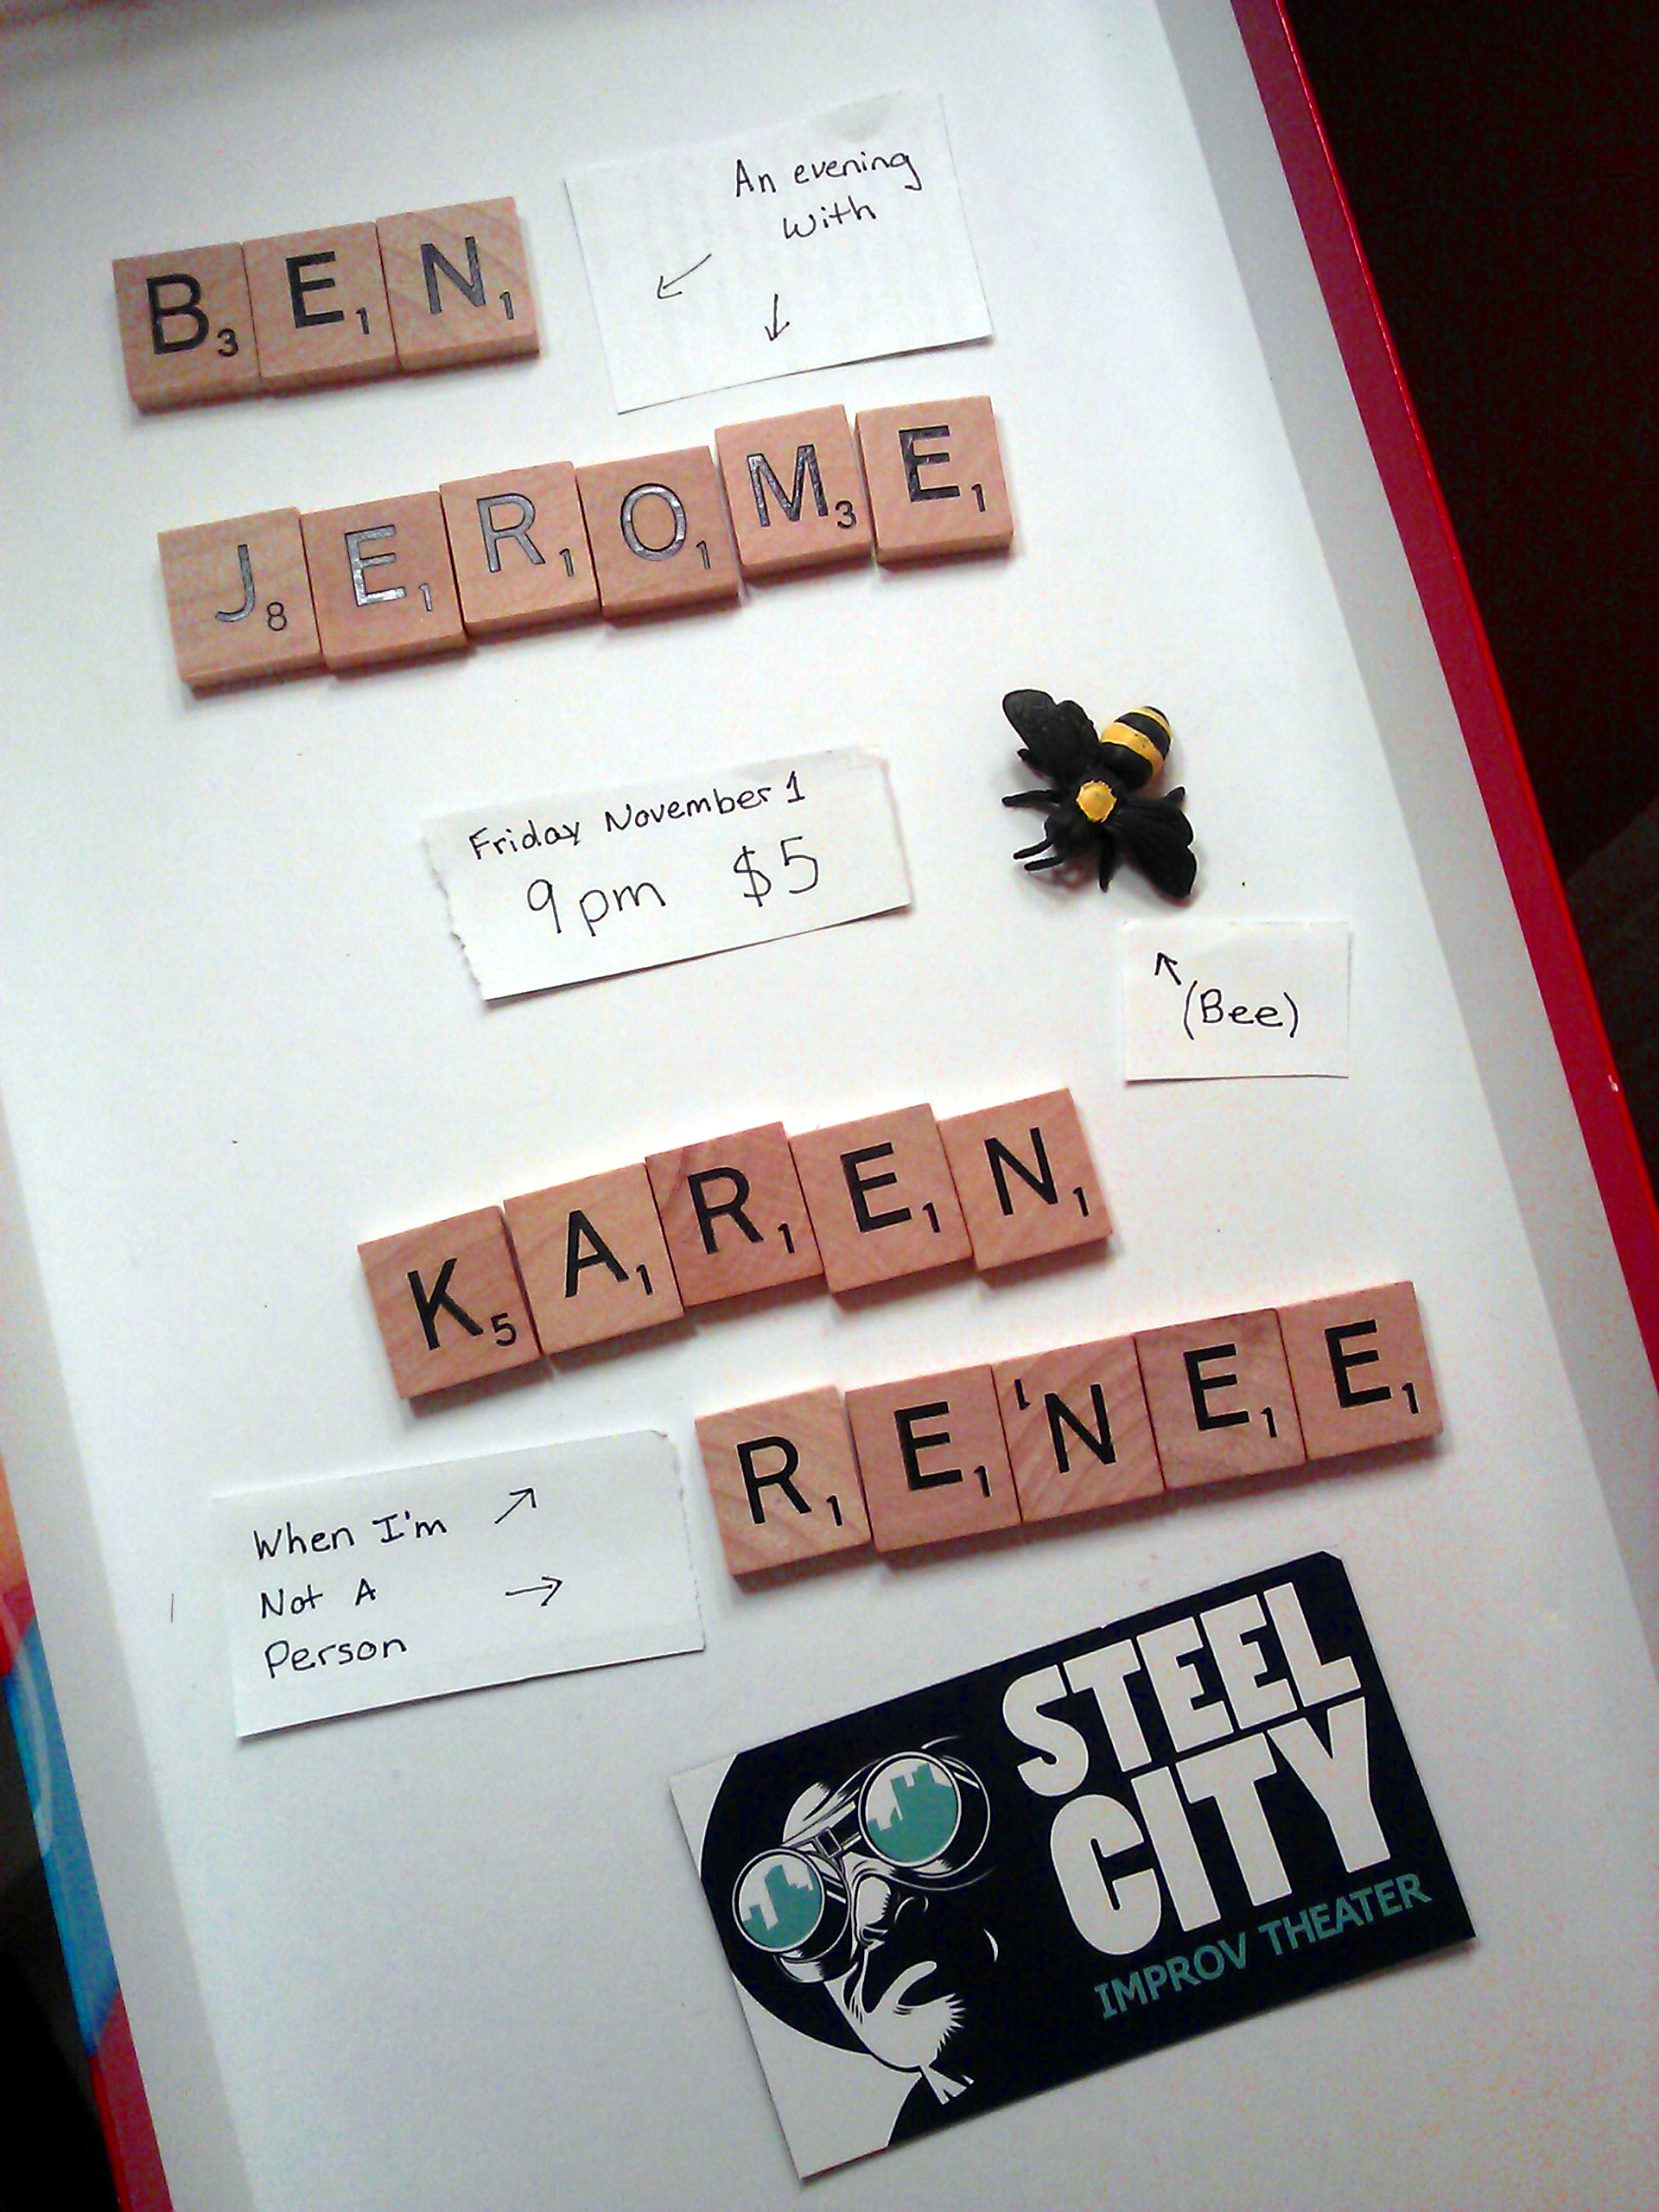 An evening
with
B3 E1 N1
J8 E1 R1 O1 M3 E1
Friday November 1
9pm $5
(Bee)
K5 A1 R1 E1 N1
R1 E1 N1 E1 E1
When I'm
Not A
Person
STEEL
CITY
IMPROV THEATER